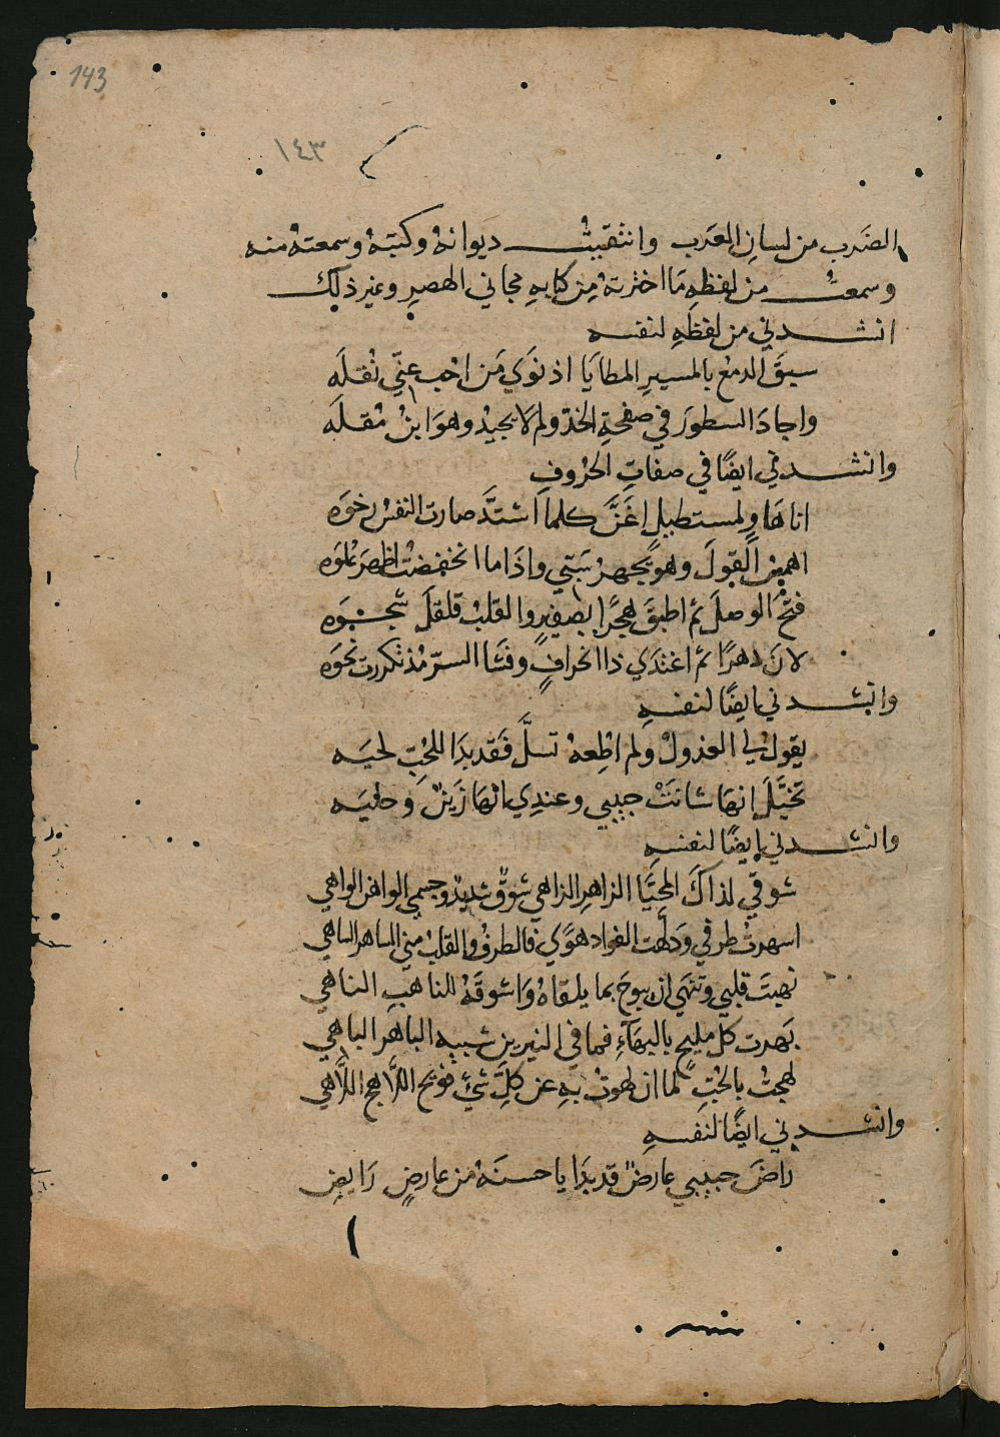 143
١٤٣
الضَرب من لسانِ العَرب وانتقيتُ ديوانهُ وكتبتهُ وسمعتهُ منه
وسمعتُ من لفظهِ مَا اخترتهُ مِن كتابهِ مجاني الهصرِ وغير ذلك
انشدني من لفظهِ لنفسه
سبقَ الدمعُ بالمسيرِ المطايَا اذ نوَي مَن احب عنّي نُقلَه
واجادَ السطورَ في صفحةِ الخدّ ولم لا يجيدُ وهوَ ابنُ مُقلَه
وانشدني ايضًا في صفاتِ الحُروفِ
انا هَاوٍ لمستطيلٍ اغَنَّ كلما اشتَدَّ صارت النفسُ رخوَه
اهمِسُ القولَ وهو يجهرُ سَبّي واذَا ما انخفضتُ اظهرَ عُلوَه
فتحَ الوصلَ ثم اطبقَ هجرًا بصفيرٍ والقلبُ قلقلَ شجوَه
لانَ دهرًا ثم اغتدَي ذا انحرافٍ وفشا السرّ مُذ تكررت نحوَه
وانشدني ايضًا لنفسهِ
يقولُ لي العذولُ ولم اطِعهُ تسلَّ فَقد بدَا للحُبّ لحيَه
تخيَّلَ انهَا شانَتْ حبيبي وعندِي انهَا زَينٌ وحليَه
وانشدني ايضًا لنفسهِ
شوقي لذاكَ المحيَّا الزاهرِ الزاهي شوقٌ شديدٌ وجسمي الواهن الواهي
اسهرتَ طرفي وَدلّهت الفواد هوًي فالطرفُ والقلبُ مني الساهر الساهي
نهبتَ قلبي وتنهَي ان يبوحَ بما يلقاهُ وَاشوقَهُ للناهبِ الناهي
بَهرت كل مليحٍ بالبهَآءِ فما في النيرين شبيه الباهر الباهي
لهجتُ بالحُبِّ لما ان لهوتُ بهِ عن كلِّ شئٍ فويح اللَّاهج اللَّاهي
وانشدني ايضًا لنفسهِ
راضَ حبيبي عارضٌ قد بدَا يا حسنَهُ من عارضٍ رَايضِ